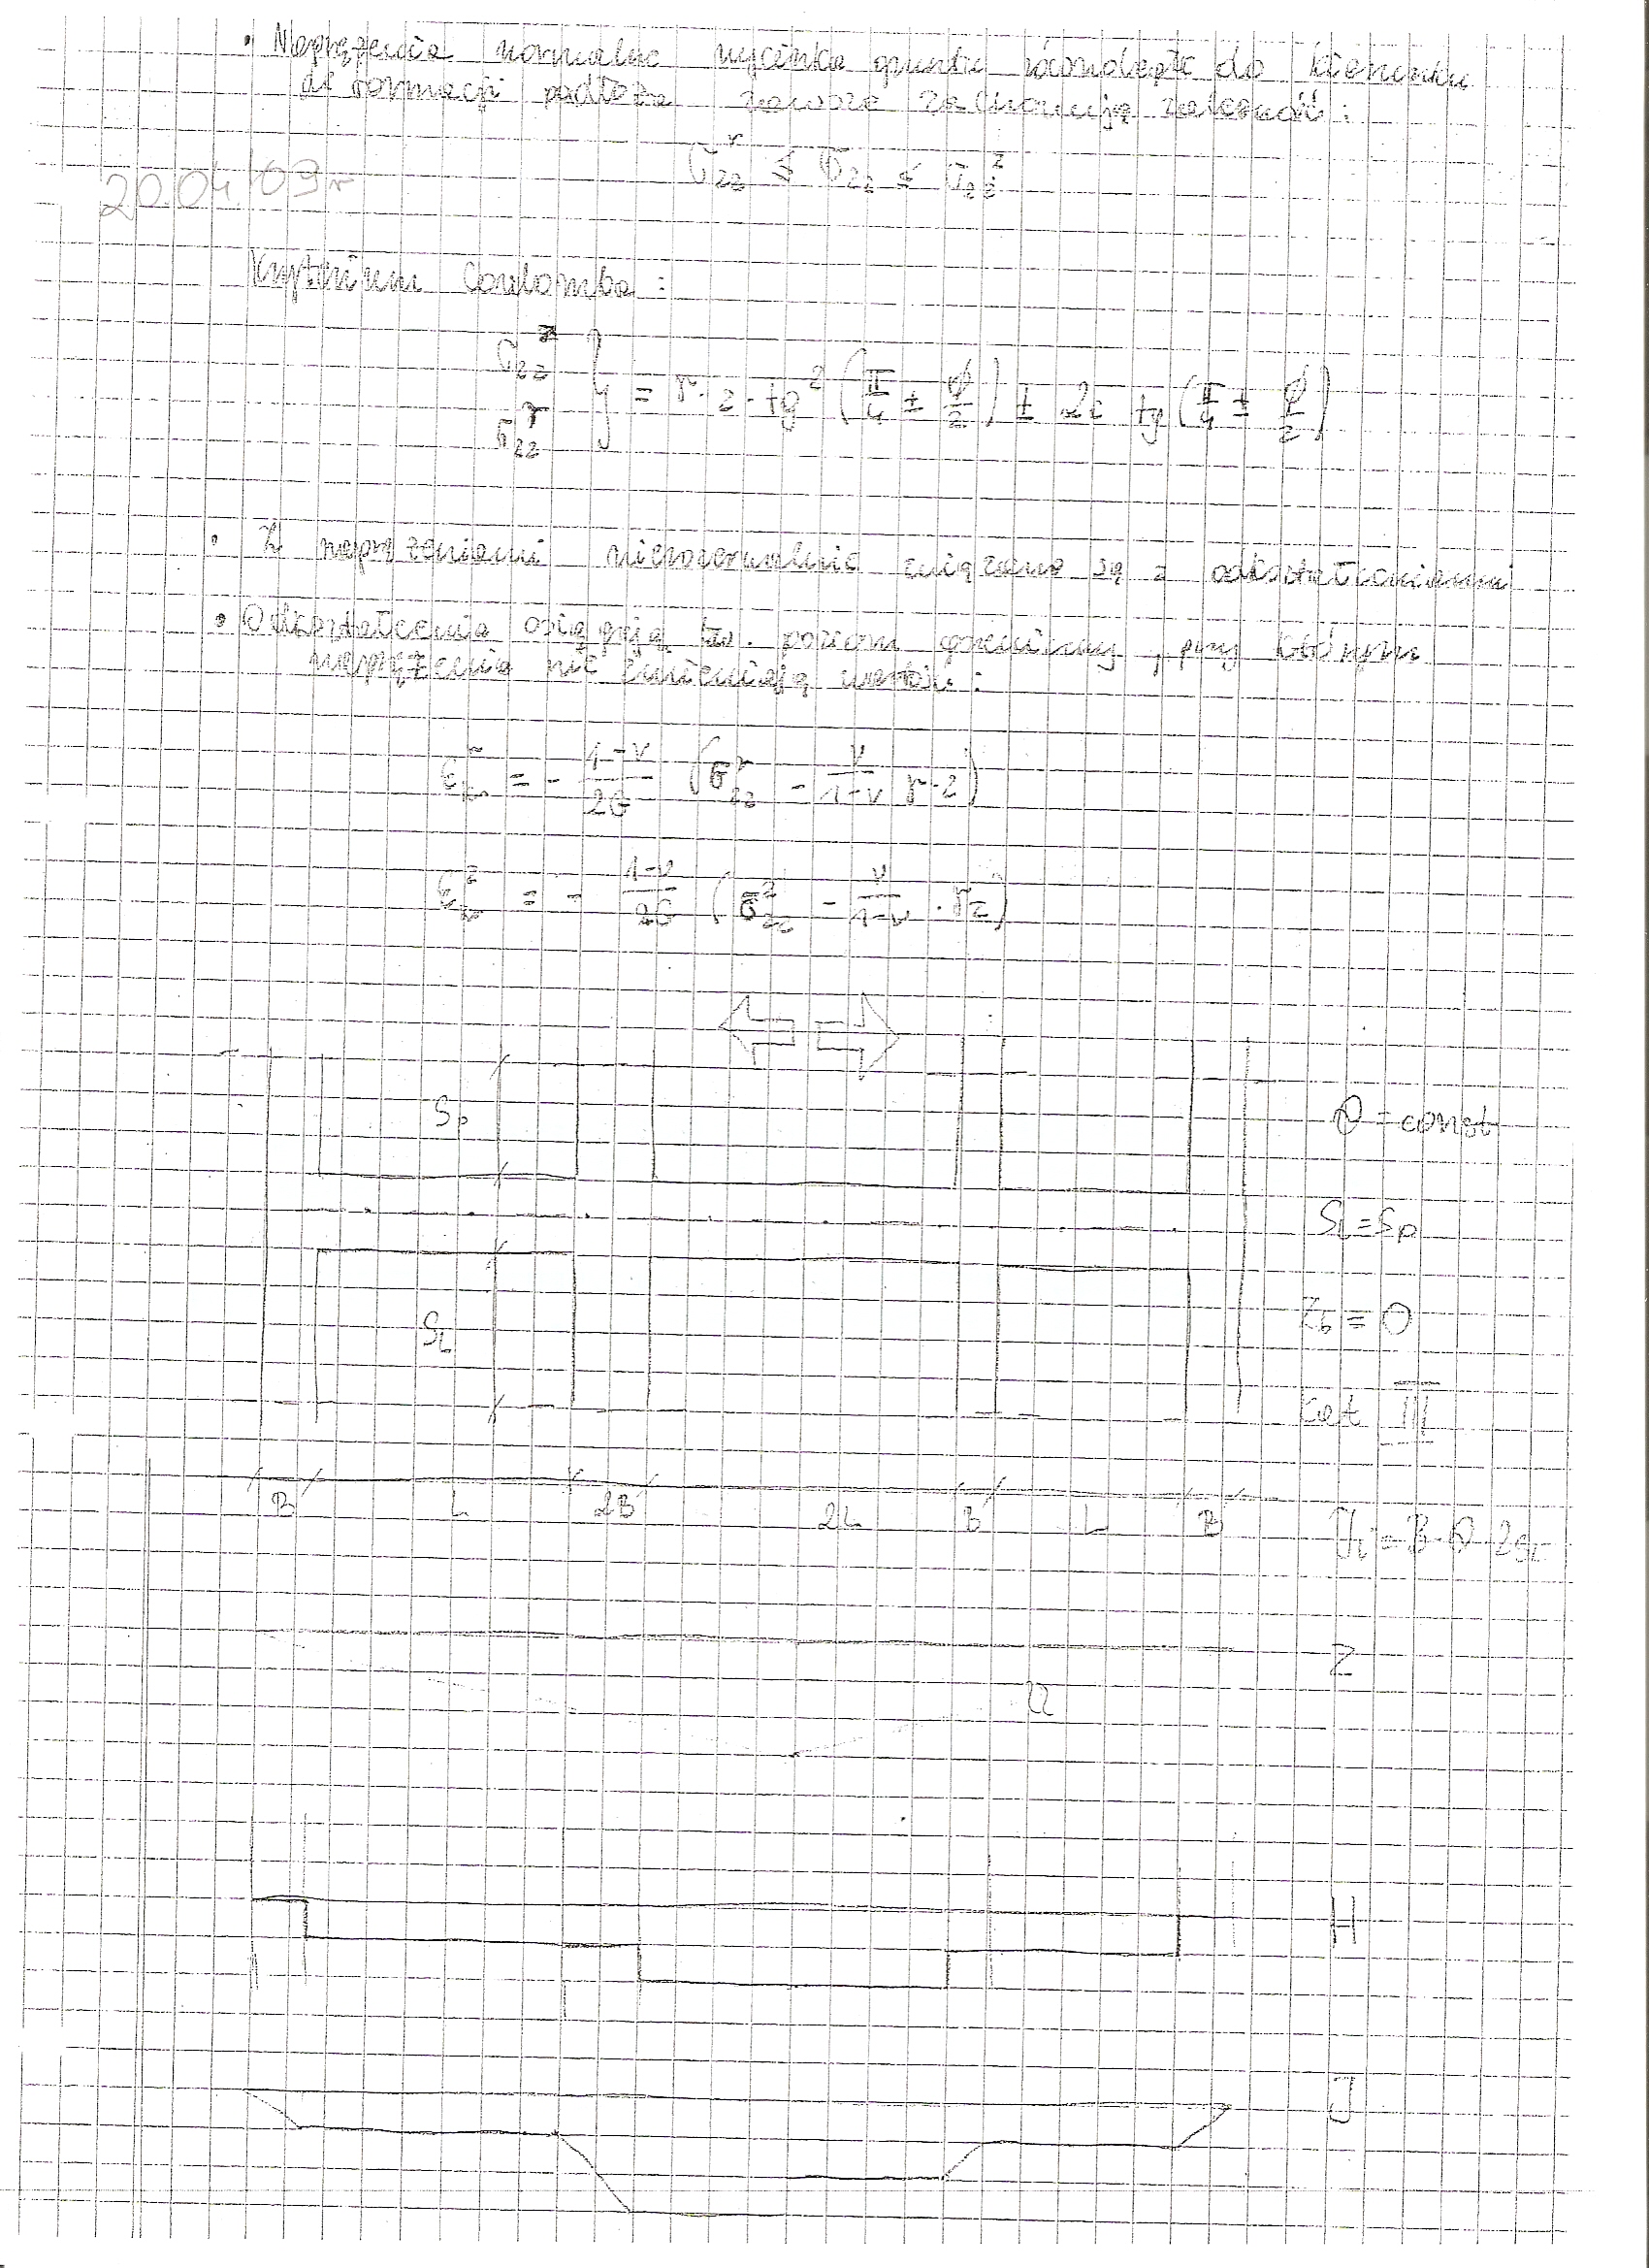 • Naprężenia normalne wycinka gruntu równoległe do kierunku
deformacji podłoża zawsze zachowują zależność:
σ^r_zz ≤ σ_zz ≤ σ^z_zz
20.04.09r
Kryterium Coulomba:
σ^z_zz
σ^r_zz } = γ·z·tg²(π/4 ± φ/2) ± 2c tg(π/4 ± φ/2)
• Z naprężeniami nierozerwalnie związane są z odkształceniami
• Odkształcenia osiągają tzw. poziom graniczny, przy którym
naprężenia nie zmieniają wartości:
ε^r = - 1-ν/2G (σ^r_zz - ν/1-ν γ·z)
ε^z = - 1-ν/2G (σ^z_zz - ν/1-ν · γz)
Sp
= const
SL = Sp
= 0
SL
Kat III
B L 2B 2L B L B
Z
U
H
J